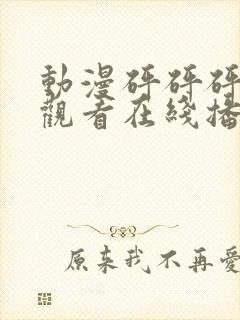 動漫砰砰砰
觀看在綫播
原来我不再愛